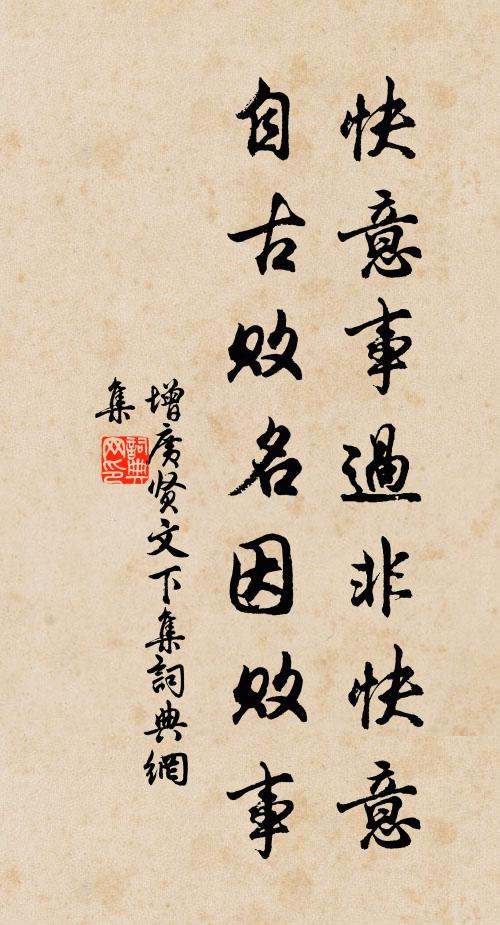 快意事過非快意
自古敗名因敗事
增廣贤文下集詞典網
集
詞典
网印